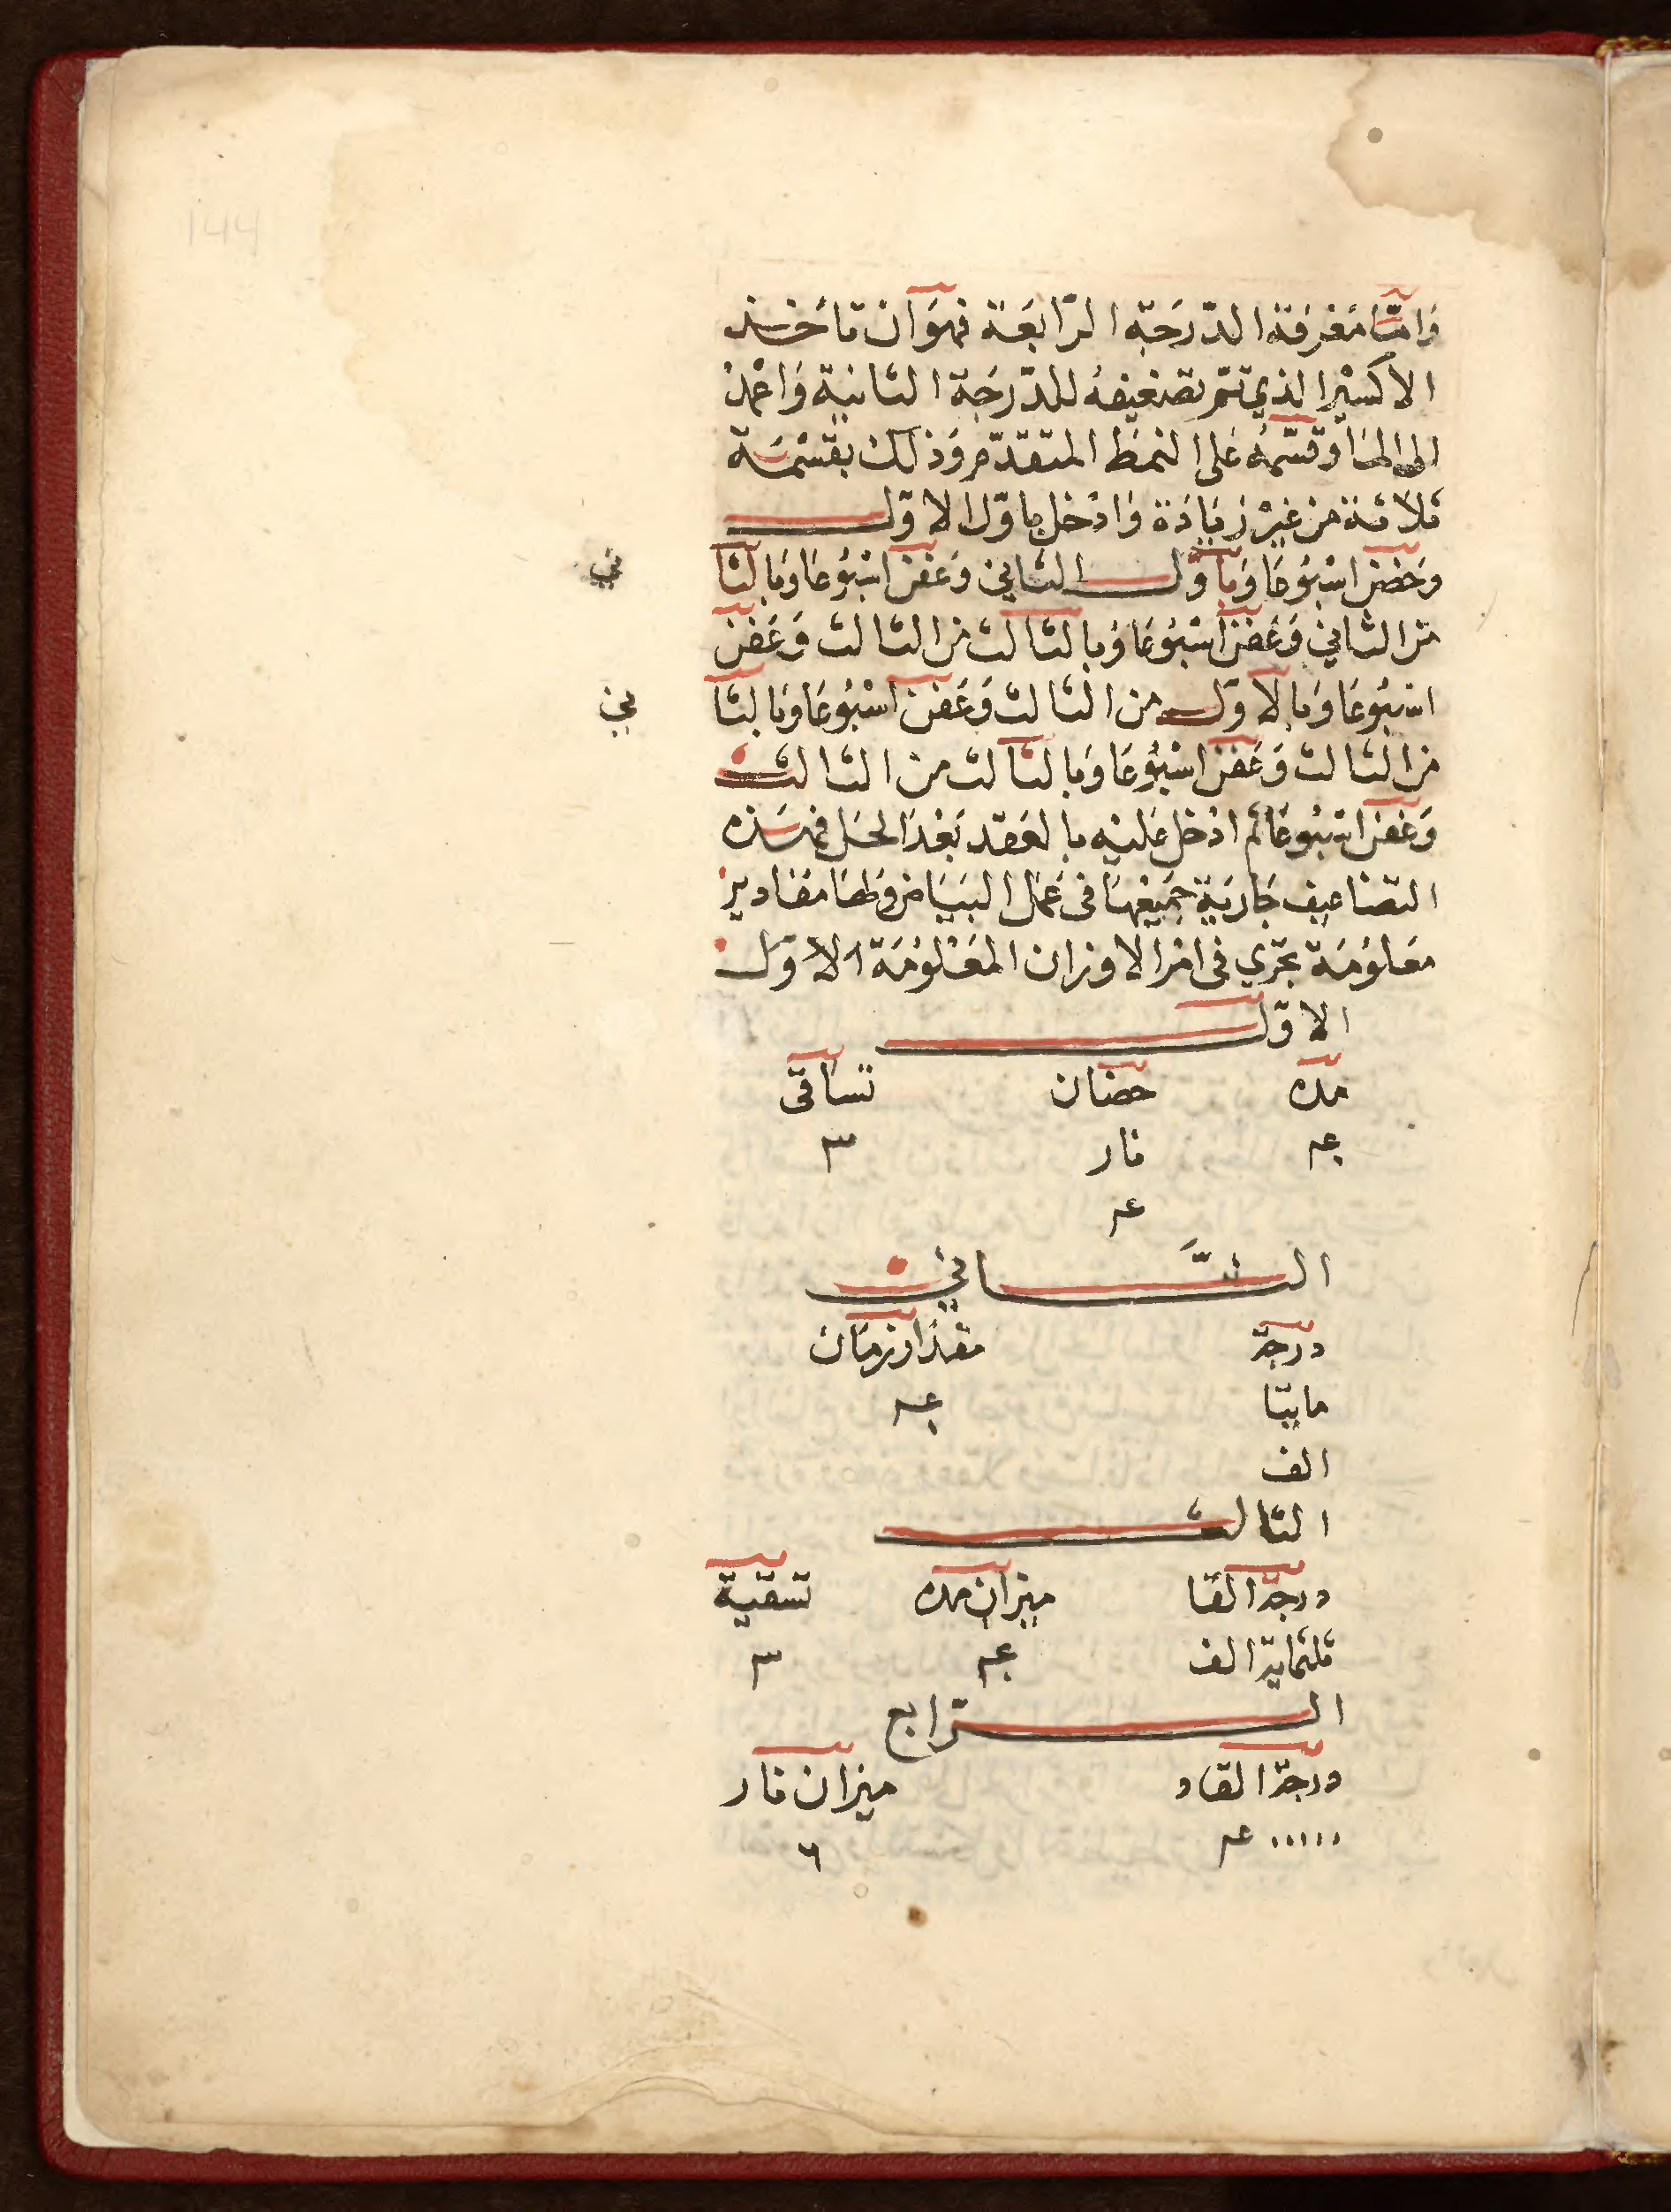 وَامَّا مَعْرِفَة الدّرَجَة الرّابعَة فهوَ ان تأخذ
الاكسيْر الذي تمّ تضعيفهُ للدّرَجَة الثانية وَاعْمدْ
الى الماء وقسّمهُ على النمَط المتقدّم وَذلك بقسْمَة
ثلاثة من غيْر زيَادَة وَادْخل باوّل الاوّل
وحَضن اسْبُوعًا وَباوّل الثاني وعَفن اسْبُوعًا وَبالثا
ني
من الثاني وَعَفن اسْبُوعًا وَبالثالث من الثالث وَعَفن
اسْبُوعًا وَبالاوّل من الثالث وَعَفن اسْبُوعًا وَبالثا
ني
من الثالث وَعَفن اسْبُوعًا وَبالثالث من الثالث
وَعَفن اسْبُوعًا ثم ادْخل عَليْه بالعَقد بَعْدَ الحَل فهَذه
التضاعيف جَاريَة جَميْعهَا في عَمَل البيَاض وَلهَا مقادير
مَعلوُمَة تجري في امْر الاوزان المَعْلوُمَة الاوّل
الاوّل
مده حضان تساقى
عـ نار ٣
عـ
الثَّاني
درجة مقدار زمَان
مايتا عـ
الف
الثالث
درجة القا ميزان مده تسقية
ثلثماية الف عـ ٣
الرّابع
درجة القاء ميزان نار
٠٠٠٠٠ عـ ٦
144